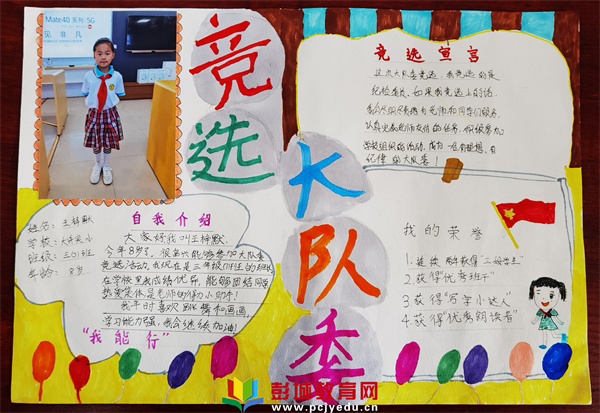 Mate40系列 5G
见非凡
竞选
大队委
竞选宣言
这次大队委竞选,我竞选的是
纪检委员,如果我竞选上的话,
认真完成老师交待的任务,积极参加
学校组织的活动,成为一名有理想、有
纪律的大队委!
自我介绍
姓名:王梓默
班级:三01班
年龄:8岁
大家好我叫王梓默.
今年8岁了,很高兴能够参加大队委
竞选活动,我现在是三年级01班的班长
在学校里我成绩优异,能够团结同学
热爱集体是老师的得力小助手!
我平时喜欢跳舞和画画,
学习能力强,我会继续加油!
“我能行”
我的荣誉
1.连续两年获得“三好学生”
2.获得“优秀班干”
3.获得“写字小达人”
4.获得“优秀朗读者”
彭城教育网
www.pcjyedu.cn